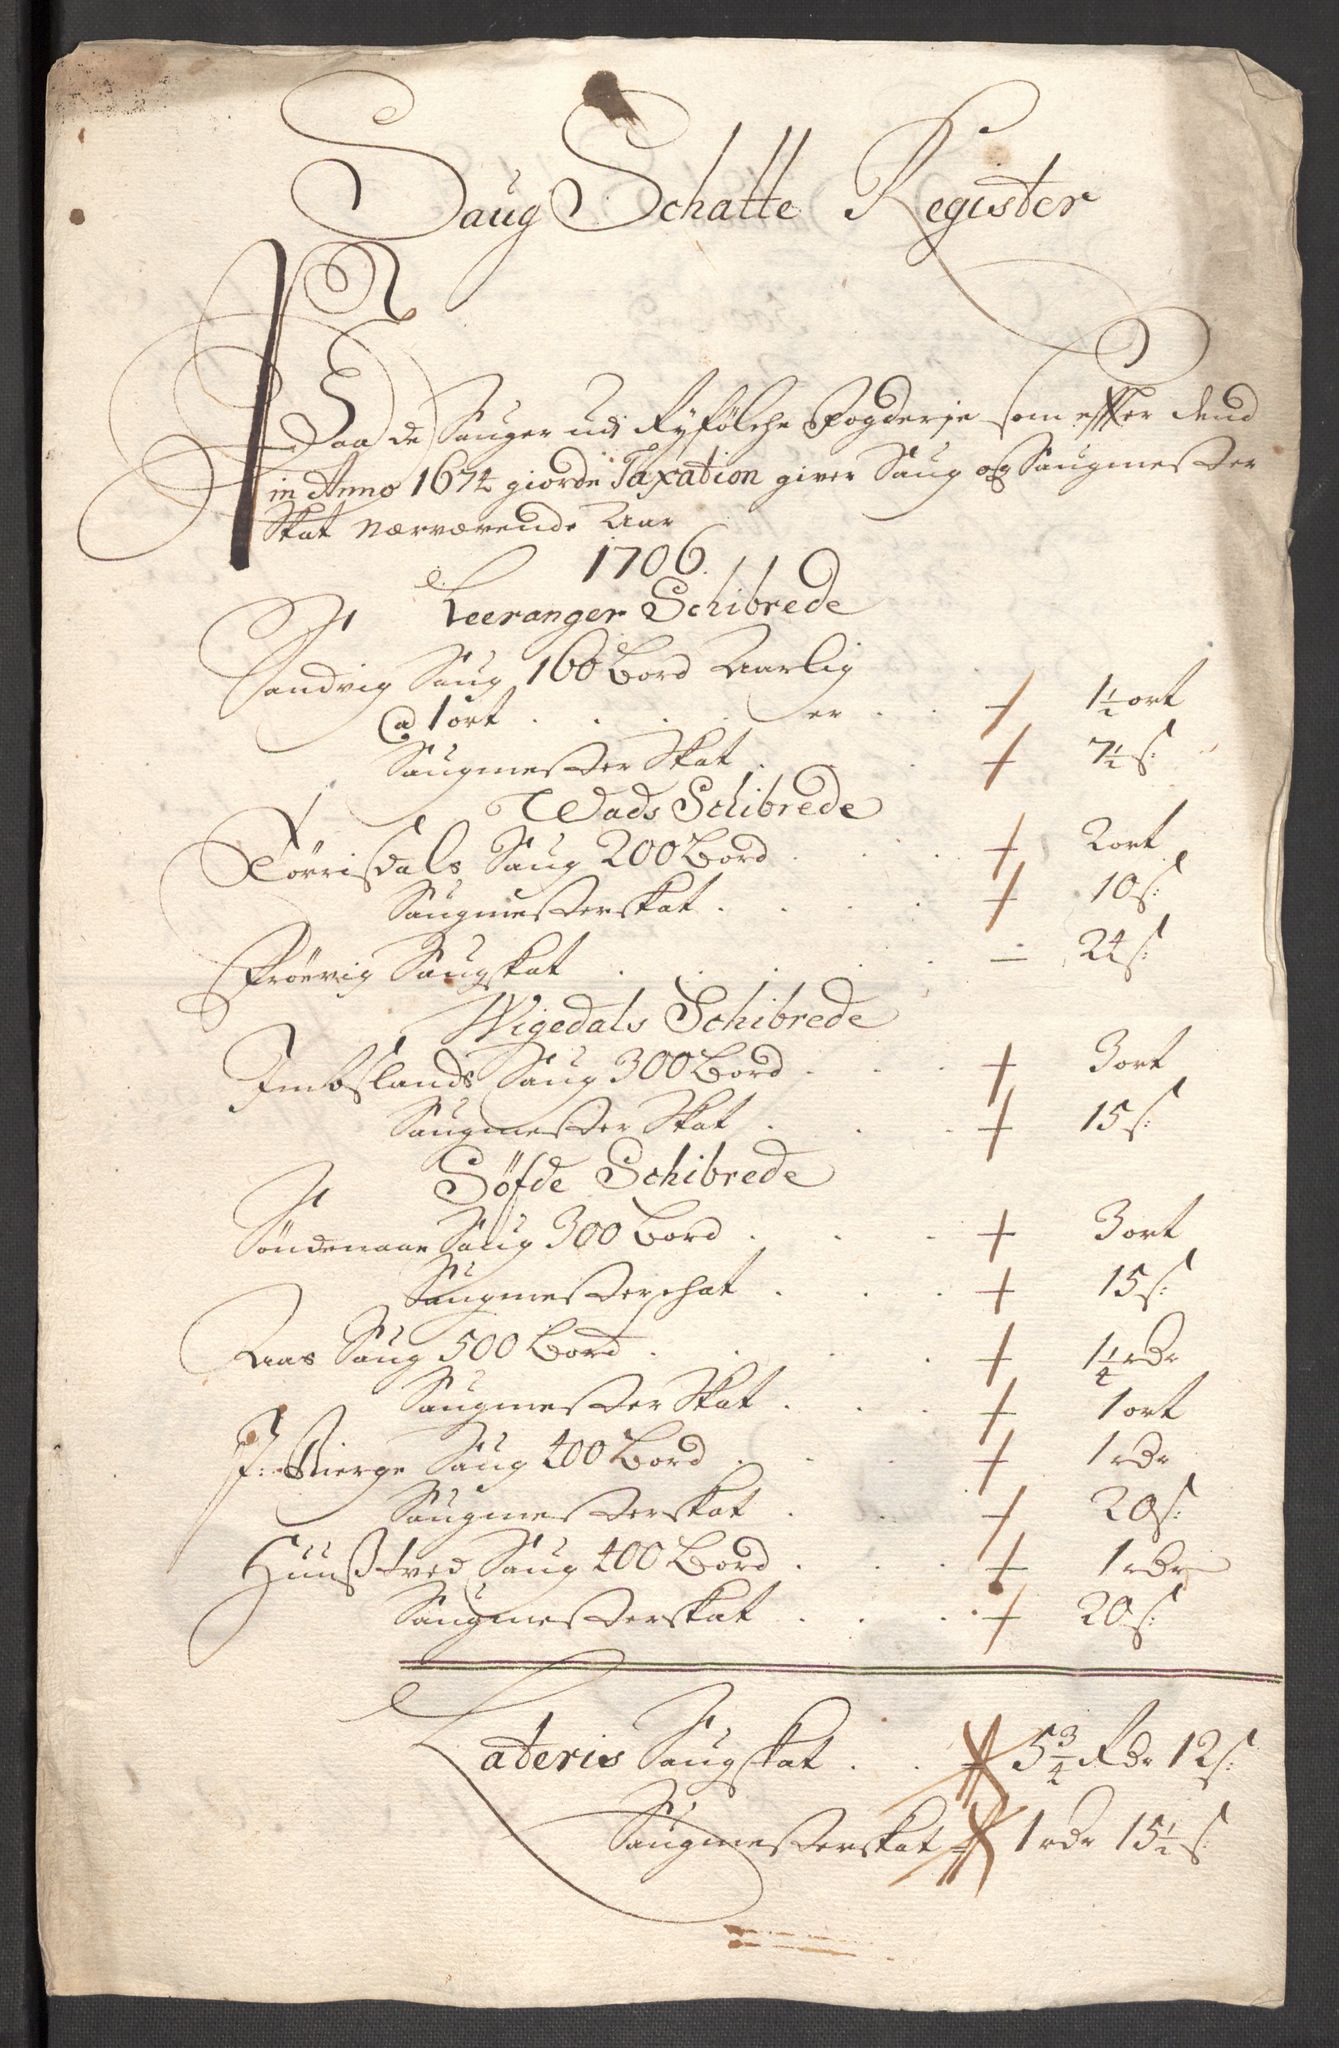 Saug Schatte Register
Paa de Sauger udi Ryfölche Fogderje som effter dend
in Anno 1674 giorde Taxation giver Saug og Saugmester
Skat nærværende Aar
1706.
Leeranger Schibrede
Sandvig Saug 160 Bord Aarlig
@ 1 ort . . . . er . . 1½ ort
Saugmester Skat . . . 7½ s:
Wads Schibrede
Törrisdals Saug 200 Bord . . . 2 ort
Saugmesterskat . . . . 10 s:
Fröevig Saugskat . . . . . — 24 s:
Wigedals Schibrede
Imbslands Saug 300 Bord . . . 3 ort
Saugmester Skat . . . 15 s:
Söfde Schibrede
Söndenaae Saug 300 Bord . . . 3 ort
Saugmesterschat . . . 15 s:
Aas Saug 500 Bord . . . . 1¼ rdr
Saugmester Skat . . . 1 ort
Saug 400 Bord . . . 1 rdr
Saugmesterskat . . . 20 s:
Huusstved Saug 400 Bord . . . 1 rdr
Saugmesterskat . . . . 20 s:
Lateris Saugskat . . 5¾ Rdr 12 s:
Saugmesterskat 1 rdr 15½ s: